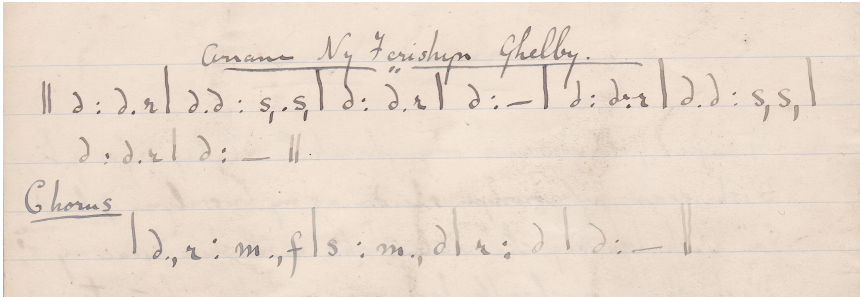 Arrane Ny Ferishyn Ghelby.
‖ d : d.r | d.d : s,.s, | d : d.r | d : — | d : d.r | d.d : s, s, |
d : d.r | d : — ‖
Chorus
| d.,r : m.,f | s : m.,d | r : d | d : — ‖